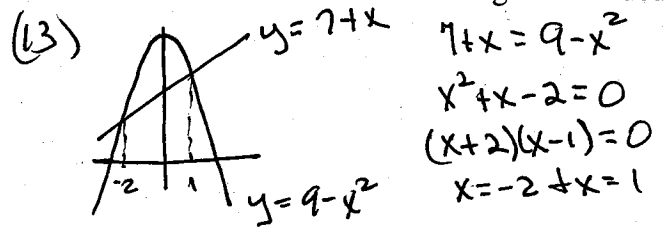 (13)
y = 7+x
-2
1
y = 9-x²
7+x = 9-x²
x²+x-2=0
(x+2)(x-1)=0
x=-2 + x=1